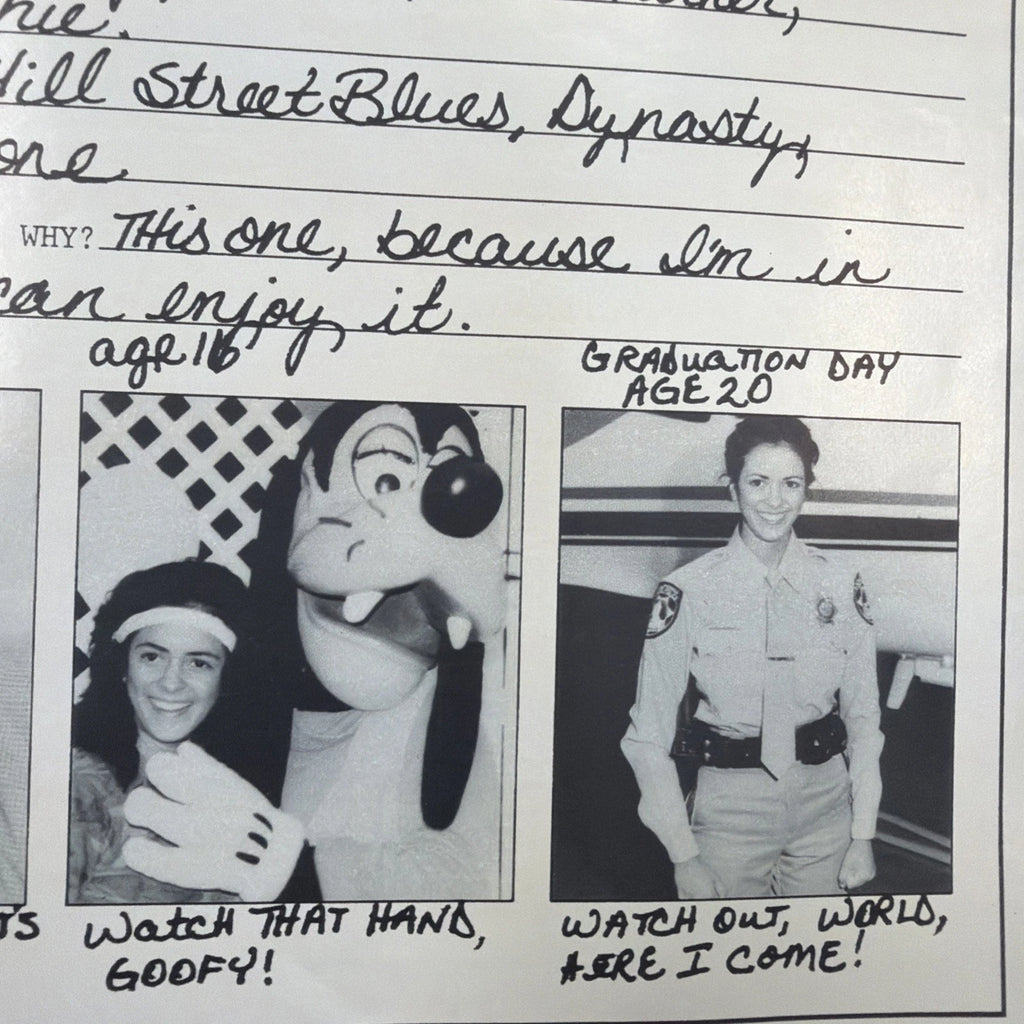 Hill Street Blues, Dynasty,
one
WHY? This one, because I'm in
can enjoy it.
age 16
GRADUATION DAY
AGE 20
WATCH THAT HAND,
GOOFY!
WATCH OUT, WORLD,
HERE I COME!